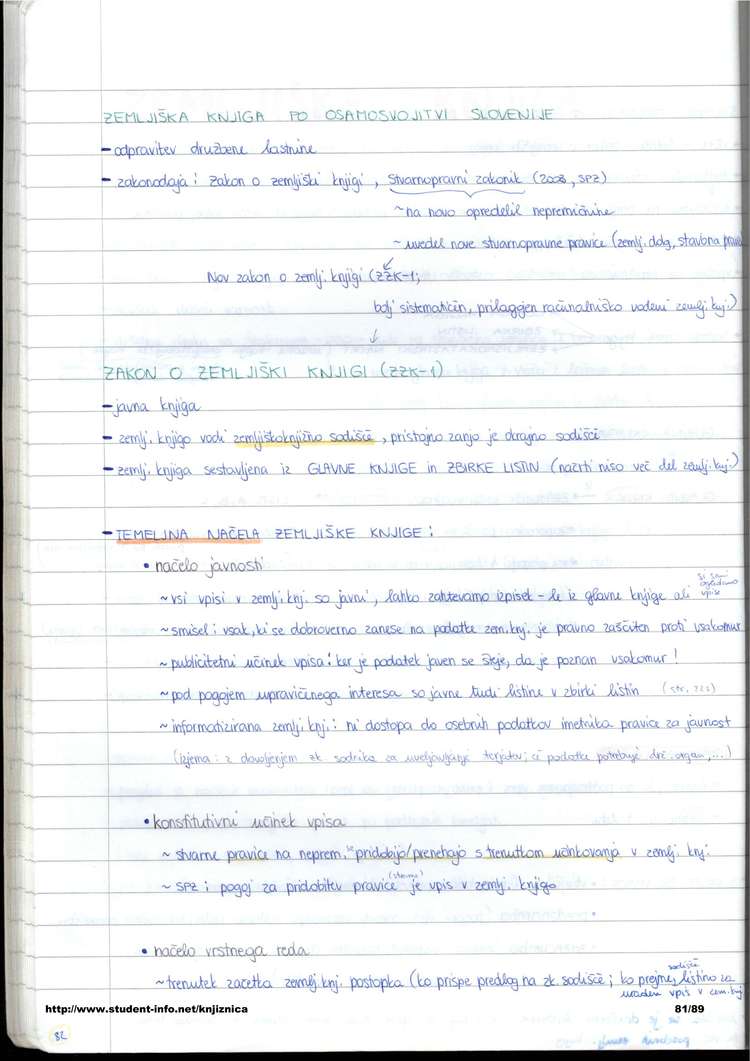 ZEMLJIŠKA KNJIGA PO OSAMOSVOJITVI SLOVENIJE
- odpravitev družbene lastnine
- zakonodaja: Zakon o zemljiški knjigi, Stvarnopravni zakonik (2003, SPZ)
~ na novo opredelil nepremičnine
~ uvedel nove stvarnopravne pravice (zemlj. dolg, stavbna prav
Nov zakon o zemlj. knjigi (ZZK-1;
bolj sistematičen, prilagojen računalniško vodeni zemlj. knj.)
ZAKON O ZEMLJIŠKI KNJIGI (ZZK-1)
- javna knjiga
- zemlj. knjigo vodi zemljiškoknjižno sodišče, pristojno zanjo je okrajno sodišči
- zemlj. knjiga sestavljena iz GLAVNE KNJIGE in ZBIRKE LISTIN (načrti niso več del zemlj. knj.)
- TEMELJNA NAČELA ZEMLJIŠKE KNJIGE:
• načelo javnosti
~ vsi vpisi v zemlj. knj. so javni, lahko zahtevamo izpisek - le iz glavne knjige ali si sami ogledamo vpise
~ smisel: vsak, ki se dobroverno zanese na podatke zem. knj. je pravno zaščiten proti vsakomur
~ publicitetni učinek vpisa: ker je podatek javen se šteje, da je poznan vsakomur!
~ pod pogojem upravičenega interesa so javne tudi listine v zbirki listin (str. 722)
~ informatizirana zemlj. knj.: ni dostopa do osebnih podatkov imetnika pravice za javnost
(izjema: z dovoljenjem zk sodnika za uveljavljanje terjatev; če podatke potrebuje drž. organ, ...)
• konstitutivni učinek vpisa
~ stvarne pravice na neprem. se pridobijo/prenehajo s trenutkom učinkovanja v zemlj. knj.
~ SPZ: pogoj za pridobitev pravice (stvarne) je vpis v zemlj. knjigo
• načelo vrstnega reda
~ trenutek začetka zemlj. knj. postopka (ko prispe predlog na zk. sodišče; ko prejme sodišče listino za
uraden vpis v zem. knj.
http://www.student-info.net/knjiznica
81/89
82